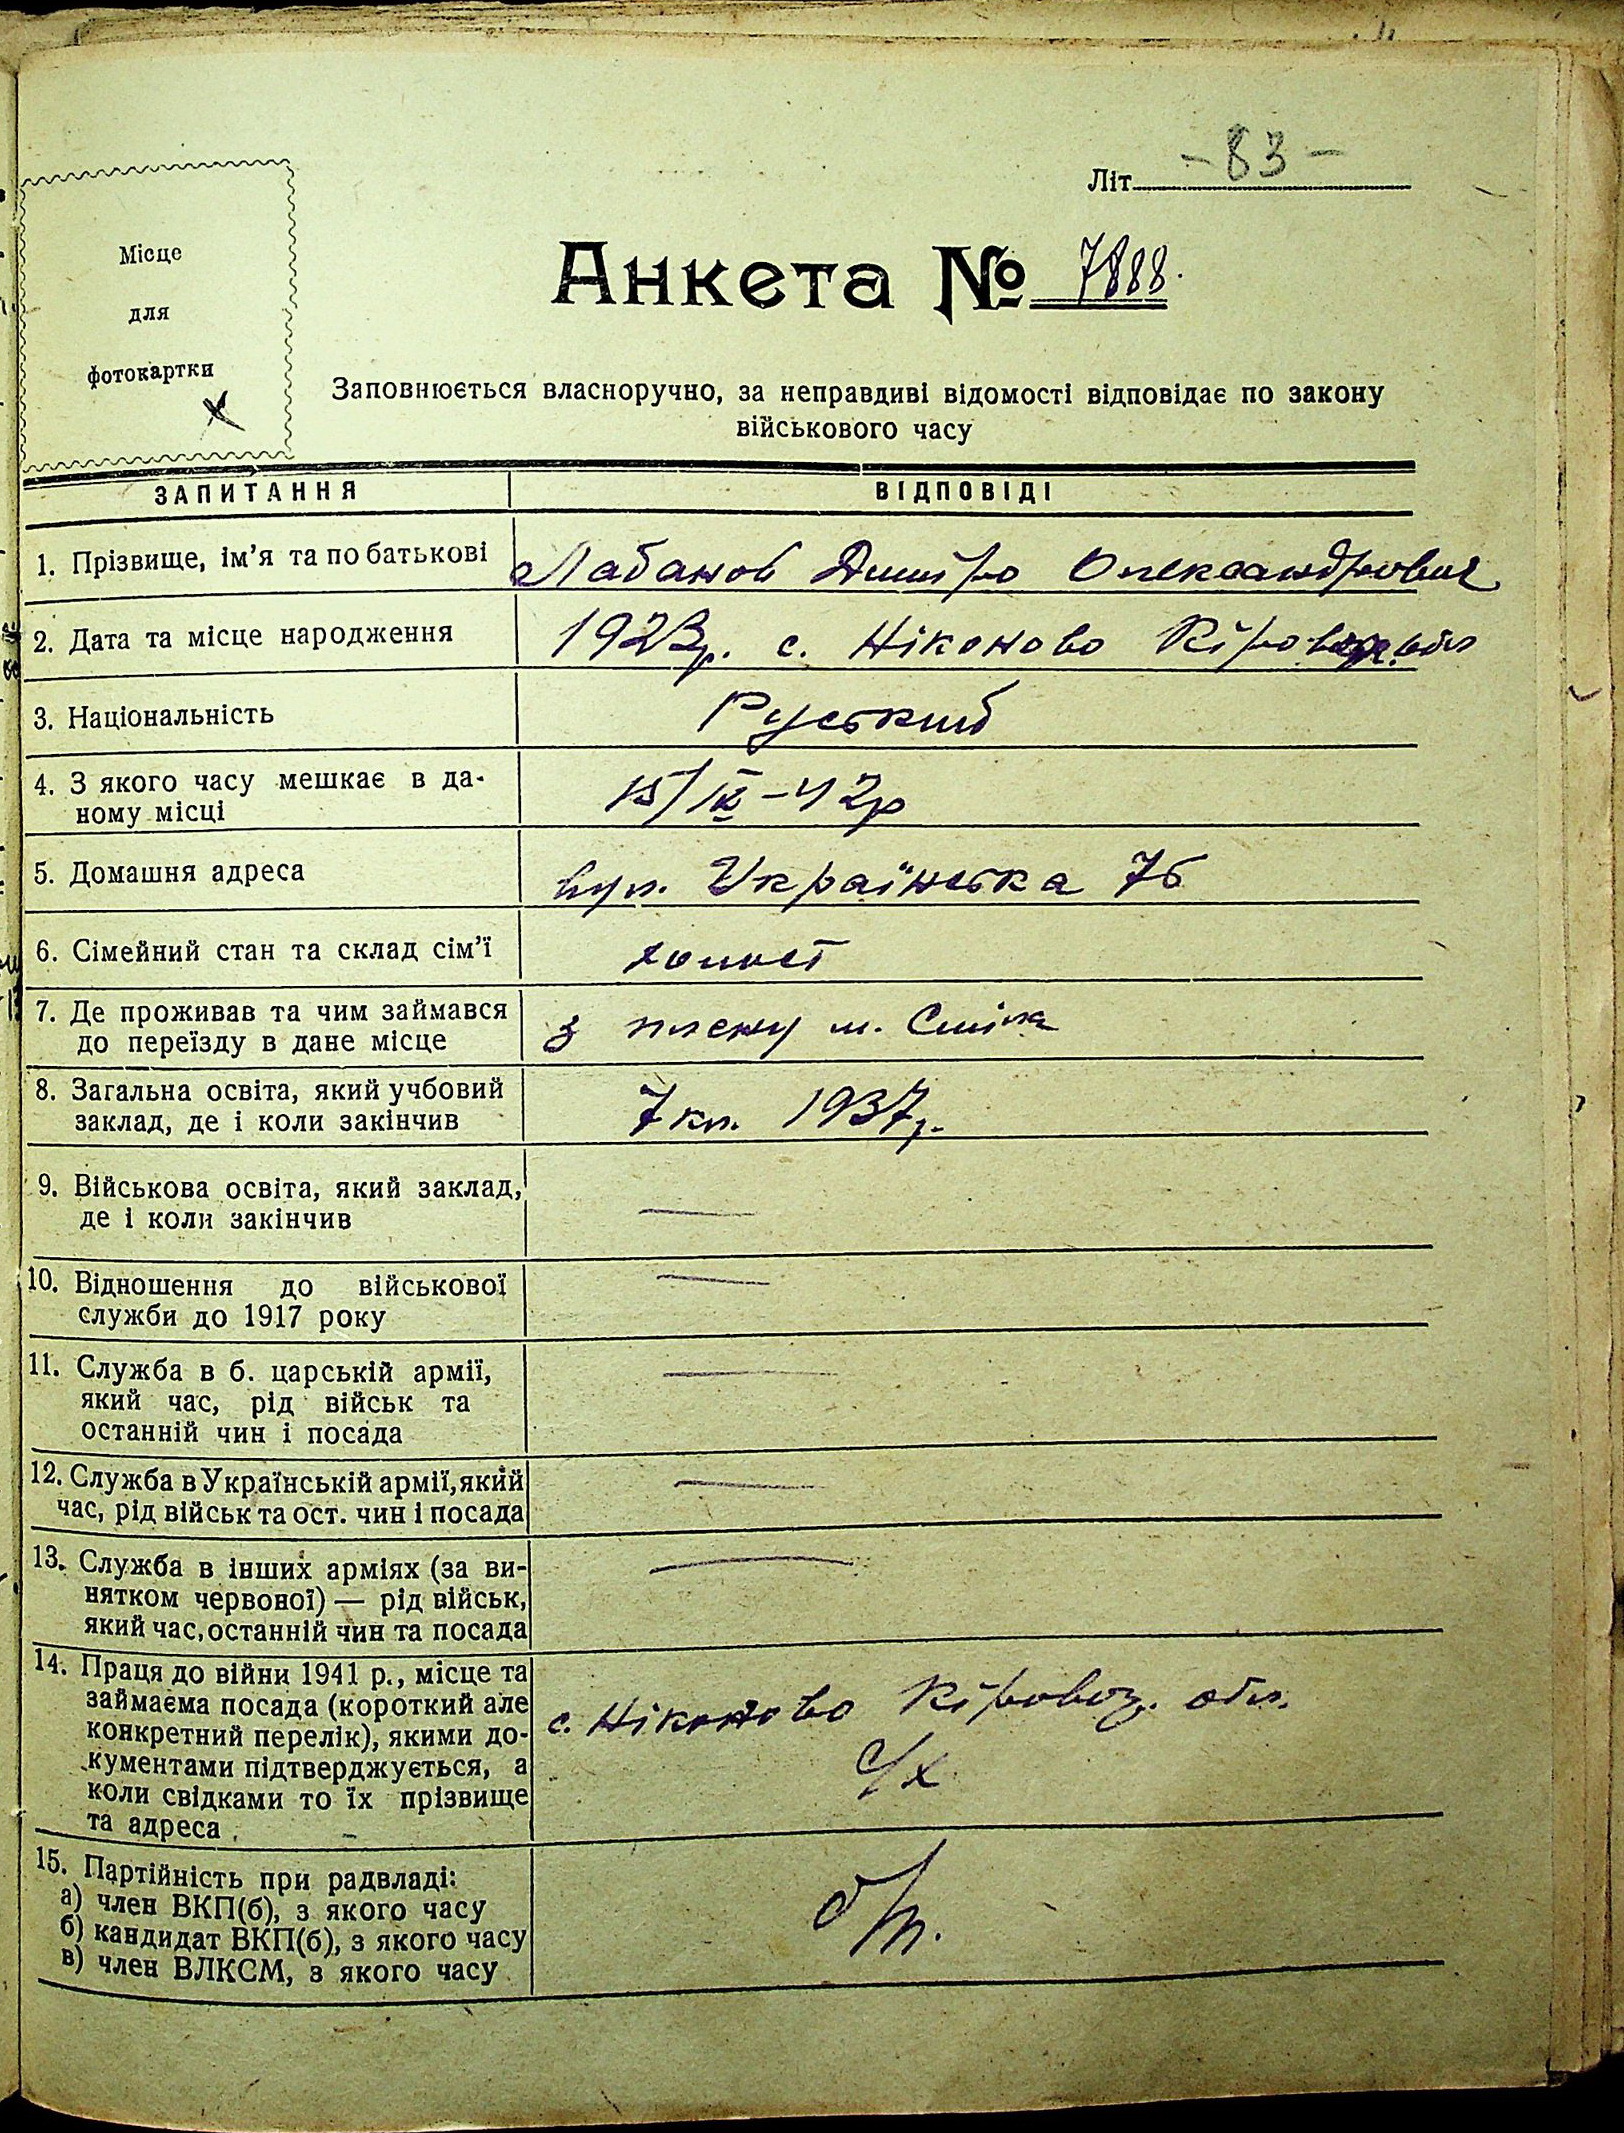 Літ. - 83 -
Місце
для
фотокартки
Анкета № 7888.
Заповнюється власноручно, за неправдиві відомості відповідає по закону
військового часу
ЗАПИТАННЯ ВІДПОВІДІ
1. Прізвище, ім'я та по батькові Лабанов Дмитро Олександрович
2. Дата та місце народження 1923р. с. Ніконово Кіровогр. обл
3. Національність Руський
4. З якого часу мешкає в да-
ному місці 15/IX-42р
5. Домашня адреса вул. Українська 76
6. Сімейний стан та склад сім'ї холост
7. Де проживав та чим займався
до переїзду в дане місце з плену м. Сміла
8. Загальна освіта, який учбовий
заклад, де і коли закінчив 7 кл. 1937р.
9. Військова освіта, який заклад,
де і коли закінчив —
10. Відношення до військової
служби до 1917 року —
11. Служба в б. царській армії,
який час, рід військ та
останній чин і посада —
12. Служба в Українській армії, який
час, рід військ та ост. чин і посада —
13. Служба в інших арміях (за ви-
нятком червоної) — рід військ,
який час, останній чин та посада —
14. Праця до війни 1941 р., місце та
займаєма посада (короткий але
конкретний перелік), якими до-
кументами підтверджується, а
коли свідками то їх прізвище
та адреса
с. Ніконово Кіровогр. обл.
с/х
15. Партійність при радвладі:
а) член ВКП(б), з якого часу
б) кандидат ВКП(б), з якого часу
в) член ВЛКСМ, з якого часу
б/п.